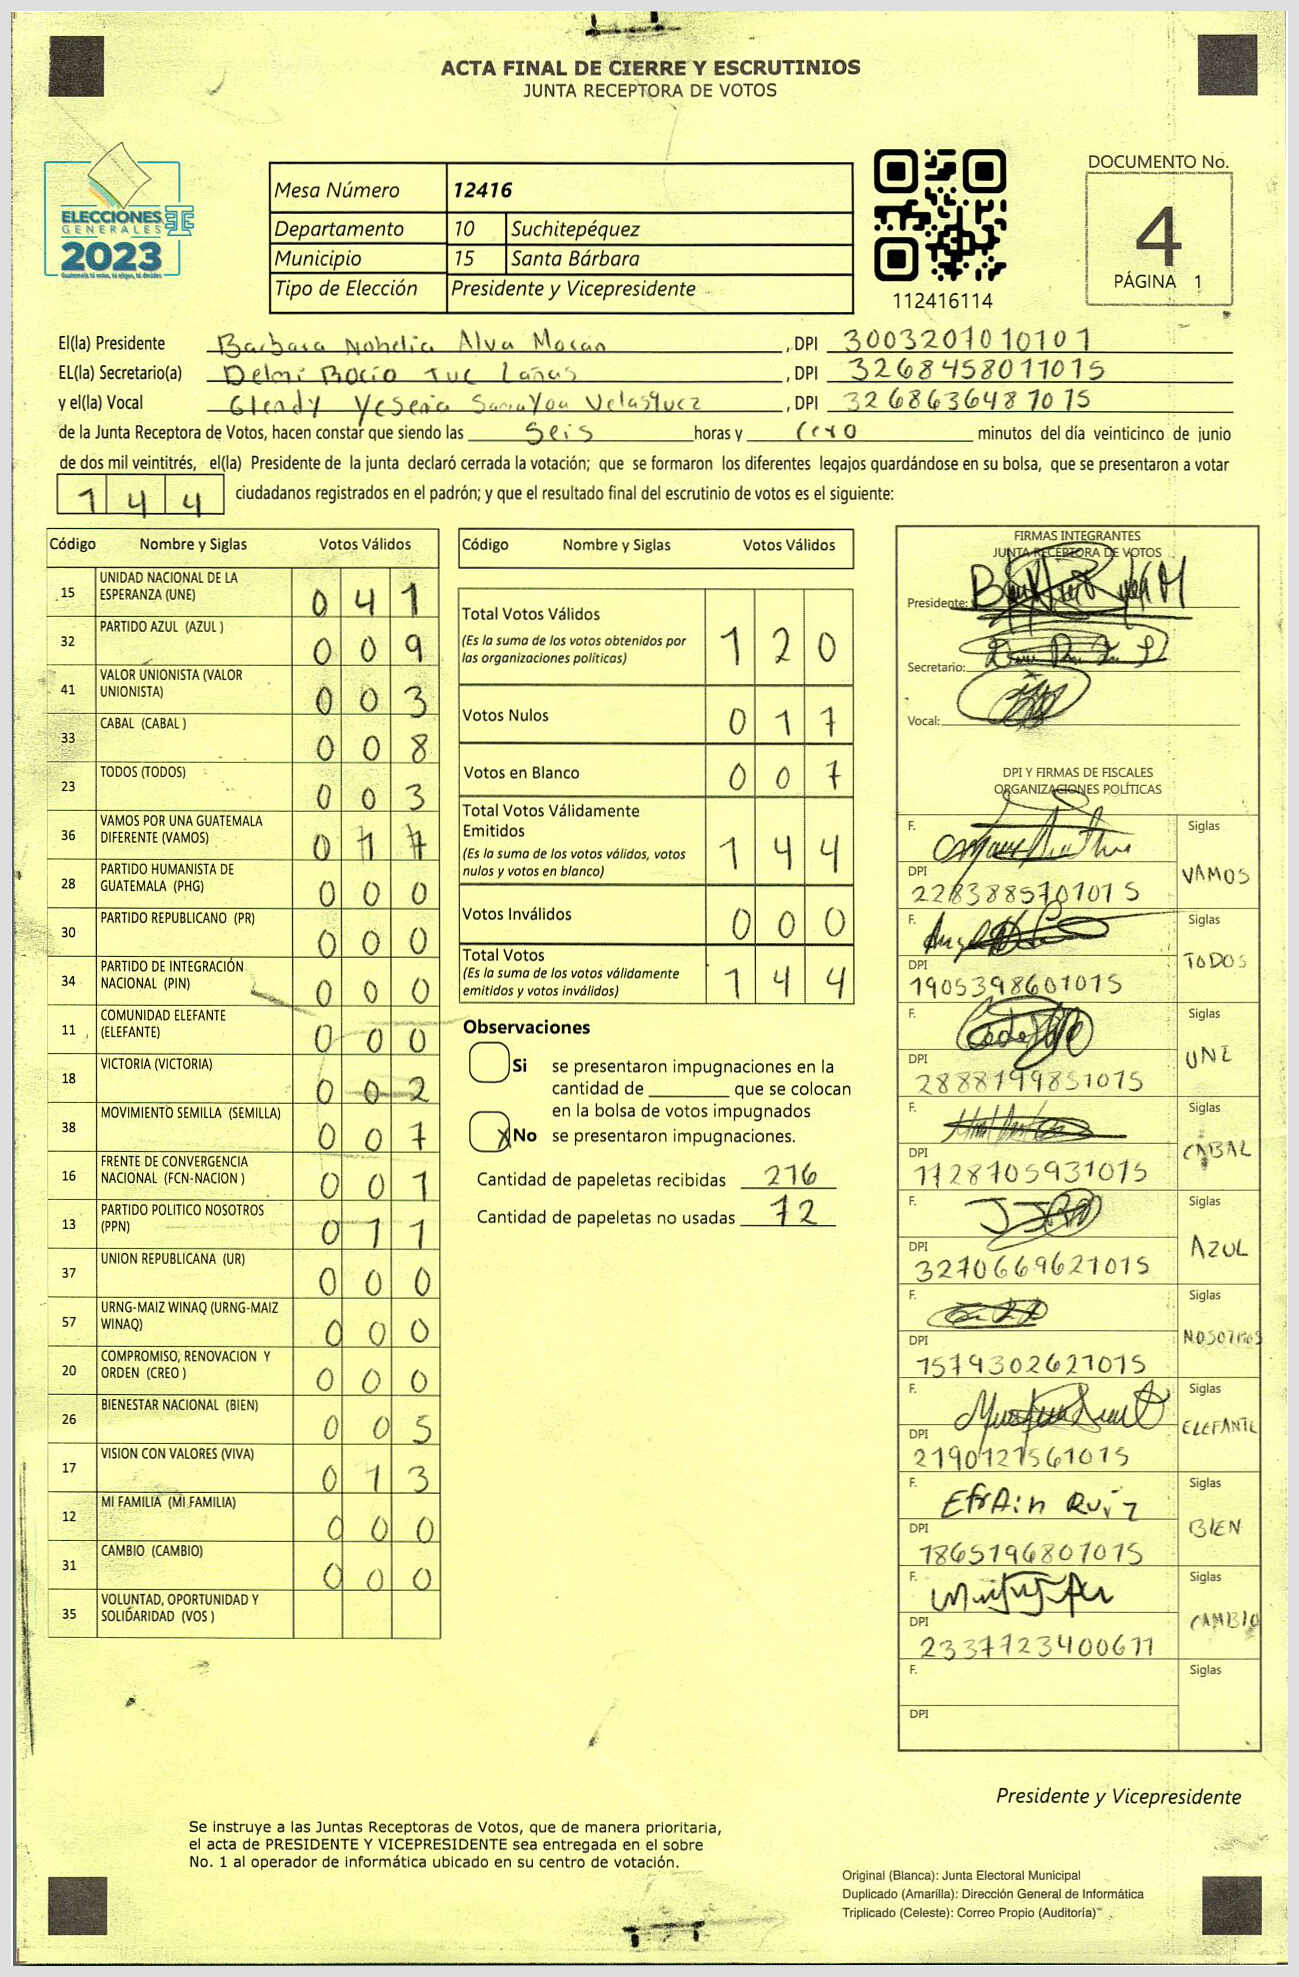 ACTA FINAL DE CIERRE Y ESCRUTINIOS
JUNTA RECEPTORA DE VOTOS
ELECCIONES
GENERALES
2023
Mesa Número 12416
Departamento 10 Suchitepéquez
Municipio 15 Santa Bárbara
Tipo de Elección Presidente y Vicepresidente
112416114
DOCUMENTO No.
4
PÁGINA 1
El(la) Presidente Barbara Nohelia Alva Moran , DPI 3003201010101
EL(la) Secretario(a) Delmi Rocío Tuc , DPI 3268458011015
y el(la) Vocal Glendy Yesenia Velasquez , DPI 3268636481015
de la Junta Receptora de Votos, hacen constar que siendo las seis horas y cero minutos del día veinticinco de junio
de dos mil veintitrés, el(la) Presidente de la junta declaró cerrada la votación; que se formaron los diferentes legajos guardándose en su bolsa, que se presentaron a votar
144 ciudadanos registrados en el padrón; y que el resultado final del escrutinio de votos es el siguiente:
Código Nombre y Siglas Votos Válidos
15 UNIDAD NACIONAL DE LA ESPERANZA (UNE) 041
32 PARTIDO AZUL (AZUL ) 009
41 VALOR UNIONISTA (VALOR UNIONISTA) 003
33 CABAL (CABAL ) 008
23 TODOS (TODOS) 003
36 VAMOS POR UNA GUATEMALA DIFERENTE (VAMOS) 017
28 PARTIDO HUMANISTA DE GUATEMALA (PHG) 000
30 PARTIDO REPUBLICANO (PR) 000
34 PARTIDO DE INTEGRACIÓN NACIONAL (PIN) 000
11 COMUNIDAD ELEFANTE (ELEFANTE) 000
18 VICTORIA (VICTORIA) 002
38 MOVIMIENTO SEMILLA (SEMILLA) 007
16 FRENTE DE CONVERGENCIA NACIONAL (FCN-NACION ) 001
13 PARTIDO POLITICO NOSOTROS (PPN) 011
37 UNION REPUBLICANA (UR) 000
57 URNG-MAIZ WINAQ (URNG-MAIZ WINAQ) 000
20 COMPROMISO, RENOVACION Y ORDEN (CREO ) 000
26 BIENESTAR NACIONAL (BIEN) 005
17 VISION CON VALORES (VIVA) 013
12 MI FAMILIA (MI FAMILIA) 000
31 CAMBIO (CAMBIO) 000
35 VOLUNTAD, OPORTUNIDAD Y SOLIDARIDAD (VOS )
Código Nombre y Siglas Votos Válidos
Total Votos Válidos 120
(Es la suma de los votos obtenidos por
las organizaciones políticas)
Votos Nulos 017
Votos en Blanco 007
Total Votos Válidamente
Emitidos 144
(Es la suma de los votos válidos, votos
nulos y votos en blanco)
Votos Inválidos 000
Total Votos 144
(Es la suma de los votos válidamente
emitidos y votos inválidos)
Observaciones
Si se presentaron impugnaciones en la
cantidad de ________ que se colocan
en la bolsa de votos impugnados
X No se presentaron impugnaciones.
Cantidad de papeletas recibidas 216
Cantidad de papeletas no usadas 72
FIRMAS INTEGRANTES
JUNTA RECEPTORA DE VOTOS
Presidente:
Secretario:
Vocal:
DPI Y FIRMAS DE FISCALES
ORGANIZACIONES POLÍTICAS
F. Siglas
DPI 2283885701015 VAMOS
F. Siglas
DPI 1905398601015 TODOS
F. Siglas
DPI 2888199851015 UNE
F. Siglas
DPI 1728705931015 CABAL
F. Siglas
DPI 3270669621015 AZUL
F. Siglas
DPI 1579302621015 NOSOTROS
F. Siglas
DPI 2190121561015 ELEFANTE
F. Efrain Ruiz Siglas
DPI 1865196801015 BIEN
F. Siglas
DPI 2337723400611 CAMBIO
F. Siglas
DPI
Presidente y Vicepresidente
Se instruye a las Juntas Receptoras de Votos, que de manera prioritaria,
el acta de PRESIDENTE Y VICEPRESIDENTE sea entregada en el sobre
No. 1 al operador de informática ubicado en su centro de votación.
Original (Blanca): Junta Electoral Municipal
Duplicado (Amarilla): Dirección General de Informática
Triplicado (Celeste): Correo Propio (Auditoría)